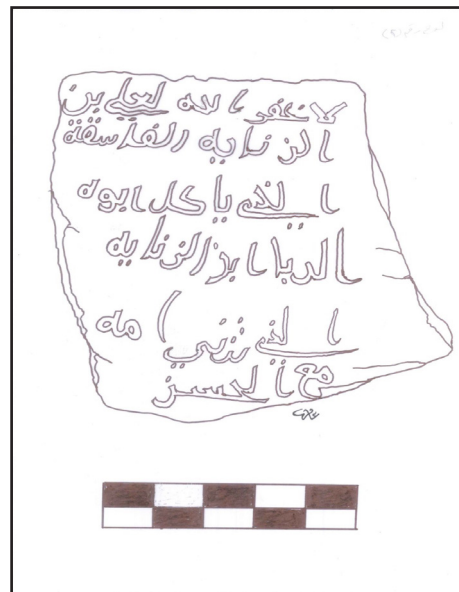 لا غفر الله لعلي بن
الزنايه الفاسقة
الذي ياكل ابوه
الربا ابن الزنايه
الذي تزني امه
مع الحسن